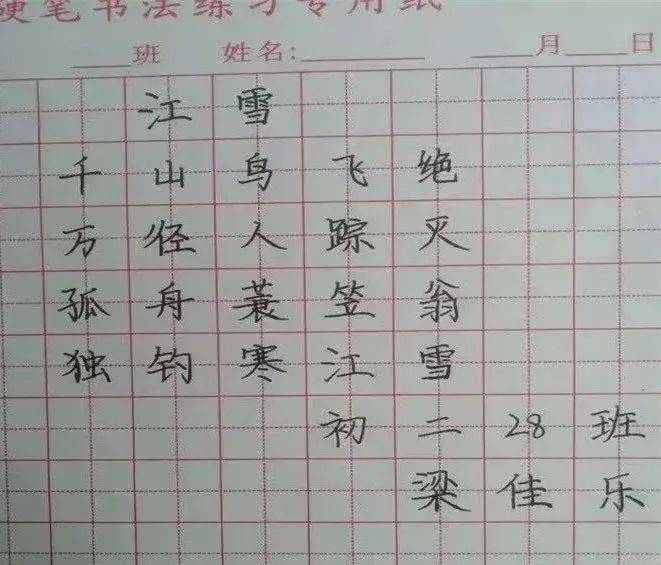 硬笔书法练习专用纸
班 姓名: 月 日
江雪
千山鸟飞绝
万径人踪灭
孤舟蓑笠翁
独钓寒江雪
初二28班
梁佳乐